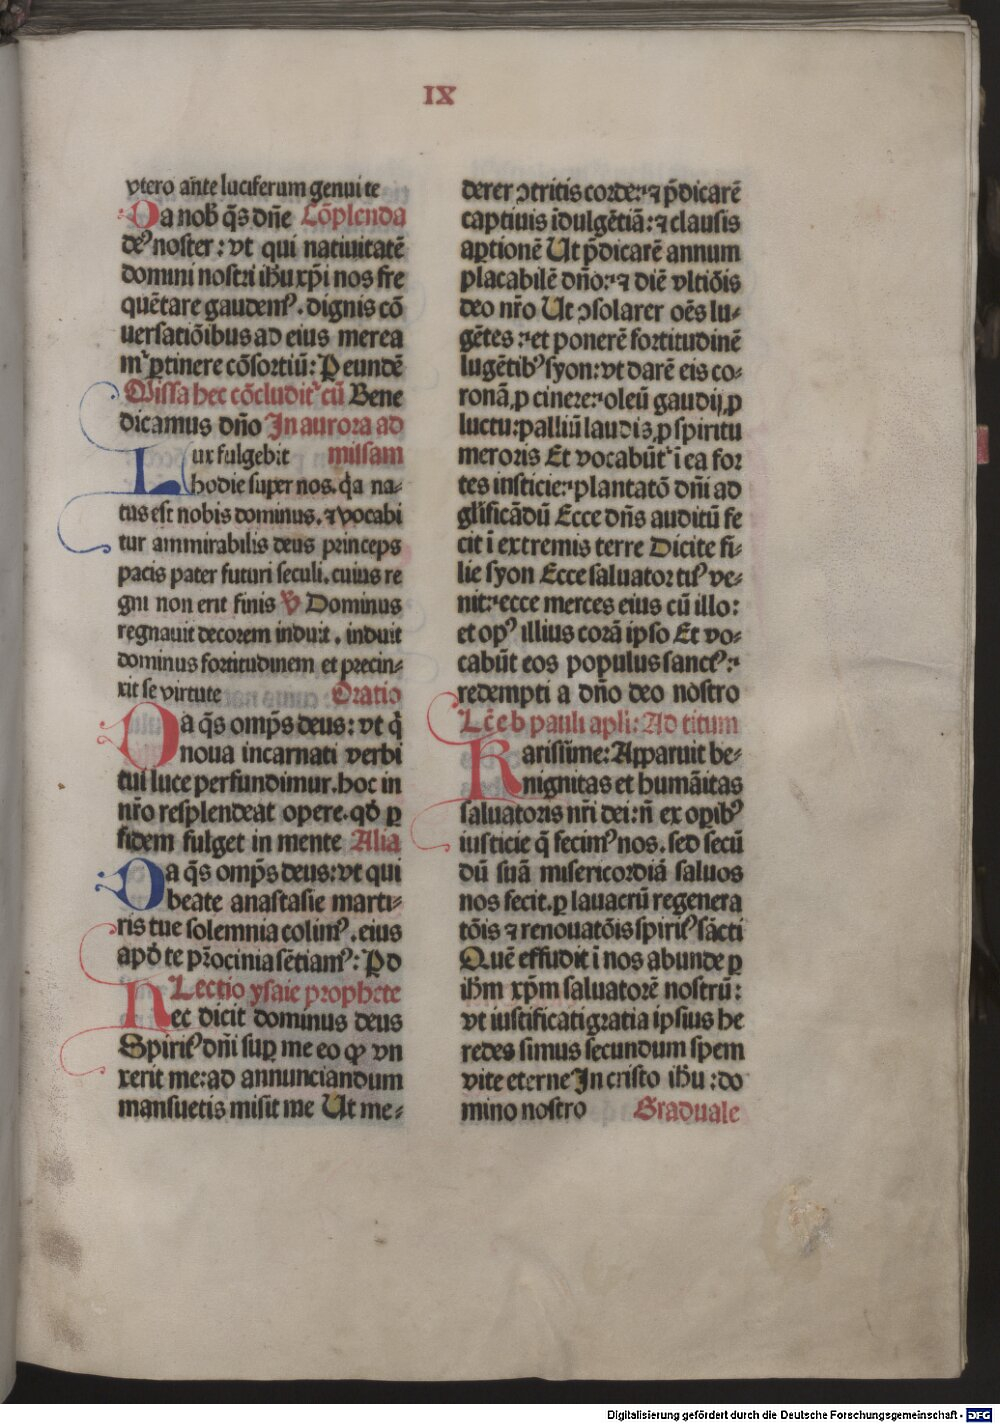 IX
vtero añte luciferum genui te
Da nob̄ q̄s dñe Cōplenda
deꝰ noster: vt qui natiuitatē
domini nostri ihu xp̄i nos fre
quētare gaudemꝰ. dignis cō
uersatiōibus ad eius merea
mᷣ ꝑtinere cōsortiū: P eundē
Missa hec cōcluditᷣ cū Bene
dicamus dño In aurora ad
Lux fulgebit missam
hodie super nos. q̇a na-
tus est nobis dominus. ⁊ vocabi
tur ammirabilis deus princeps
pacis pater futuri seculi. cuius re
gni non erit finis ℣ Dominus
regnauit decorem induit. induit
dominus fortitudinem et precin-
xit se virtute Oratio
Da q̄s omp̄s deus: vt q̇
noua incarnati verbi
tui luce perfundimur. hoc in
nr̄o resplendeat opere. qd̓ ꝑ
fidem fulget in mente Alia
Da q̄s omp̄s deus: vt qui
beate anastasie marti-
ris tue solemnia colimꝰ. eius
apd̓ te pr̄ocinia sētiamꝰ: P d
Lectio ysaie prophete
Hec dicit dominus deus
Spiritꝰ dñi suꝑ me eo ꝙ vn
xerit me: ad annunciandum
mansuetis misit me Ut me-
derer ↄtritis corde: ⁊ p̄dicarē
captiuis īdulgētiā: ⁊ clausis
aꝑtionē Ut p̄dicarē annum
placabilē dño: ⁊ diē vltiōis
deo nr̄o Ut ↄsolarer oēs lu-
gētes: et ponerē fortitudinē
lugētibꝰ syon: vt darē eis co-
ronā ꝓ cinere: oleū gaudij ꝓ
luctu: palliū laudis ꝓ spiritu
meroris Et vocabūtᷣ ī ea for
tes iusticie: plantatō dñi ad
gl̄ificādū Ecce dñs auditū fe
cit ī extremis terre Dicite fi-
lie syon Ecce saluator tuꝰ ve-
nit: ecce merces eius cū illo:
et opꝰ illius corā ipso Et vo-
cabūt eos populus sanctꝰ:
redempti a dño deo nostro
Lc̄ē b pauli apli: Ad titum
Karissīme: Apparuit be-
nignitas et humāitas
saluatoris nr̄i dei: n̄ ex oꝑibꝰ
iusticie q̄ fecimꝰ nos. sed secū
dū suā misericordiā saluos
nos fecit. ꝑ lauacrū regenera
tōis ⁊ renouatōis spiritꝰ sācti
Quē effudit ī nos abunde ꝑ
ihm xp̄m saluatorē nostrū:
vt iustificati gratia ipsius he
redes simus secundum spem
vite eterne In cristo ihu: do
mino nostro Graduale
Digitalisierung gefördert durch die Deutsche Forschungsgemeinschaft - DFG